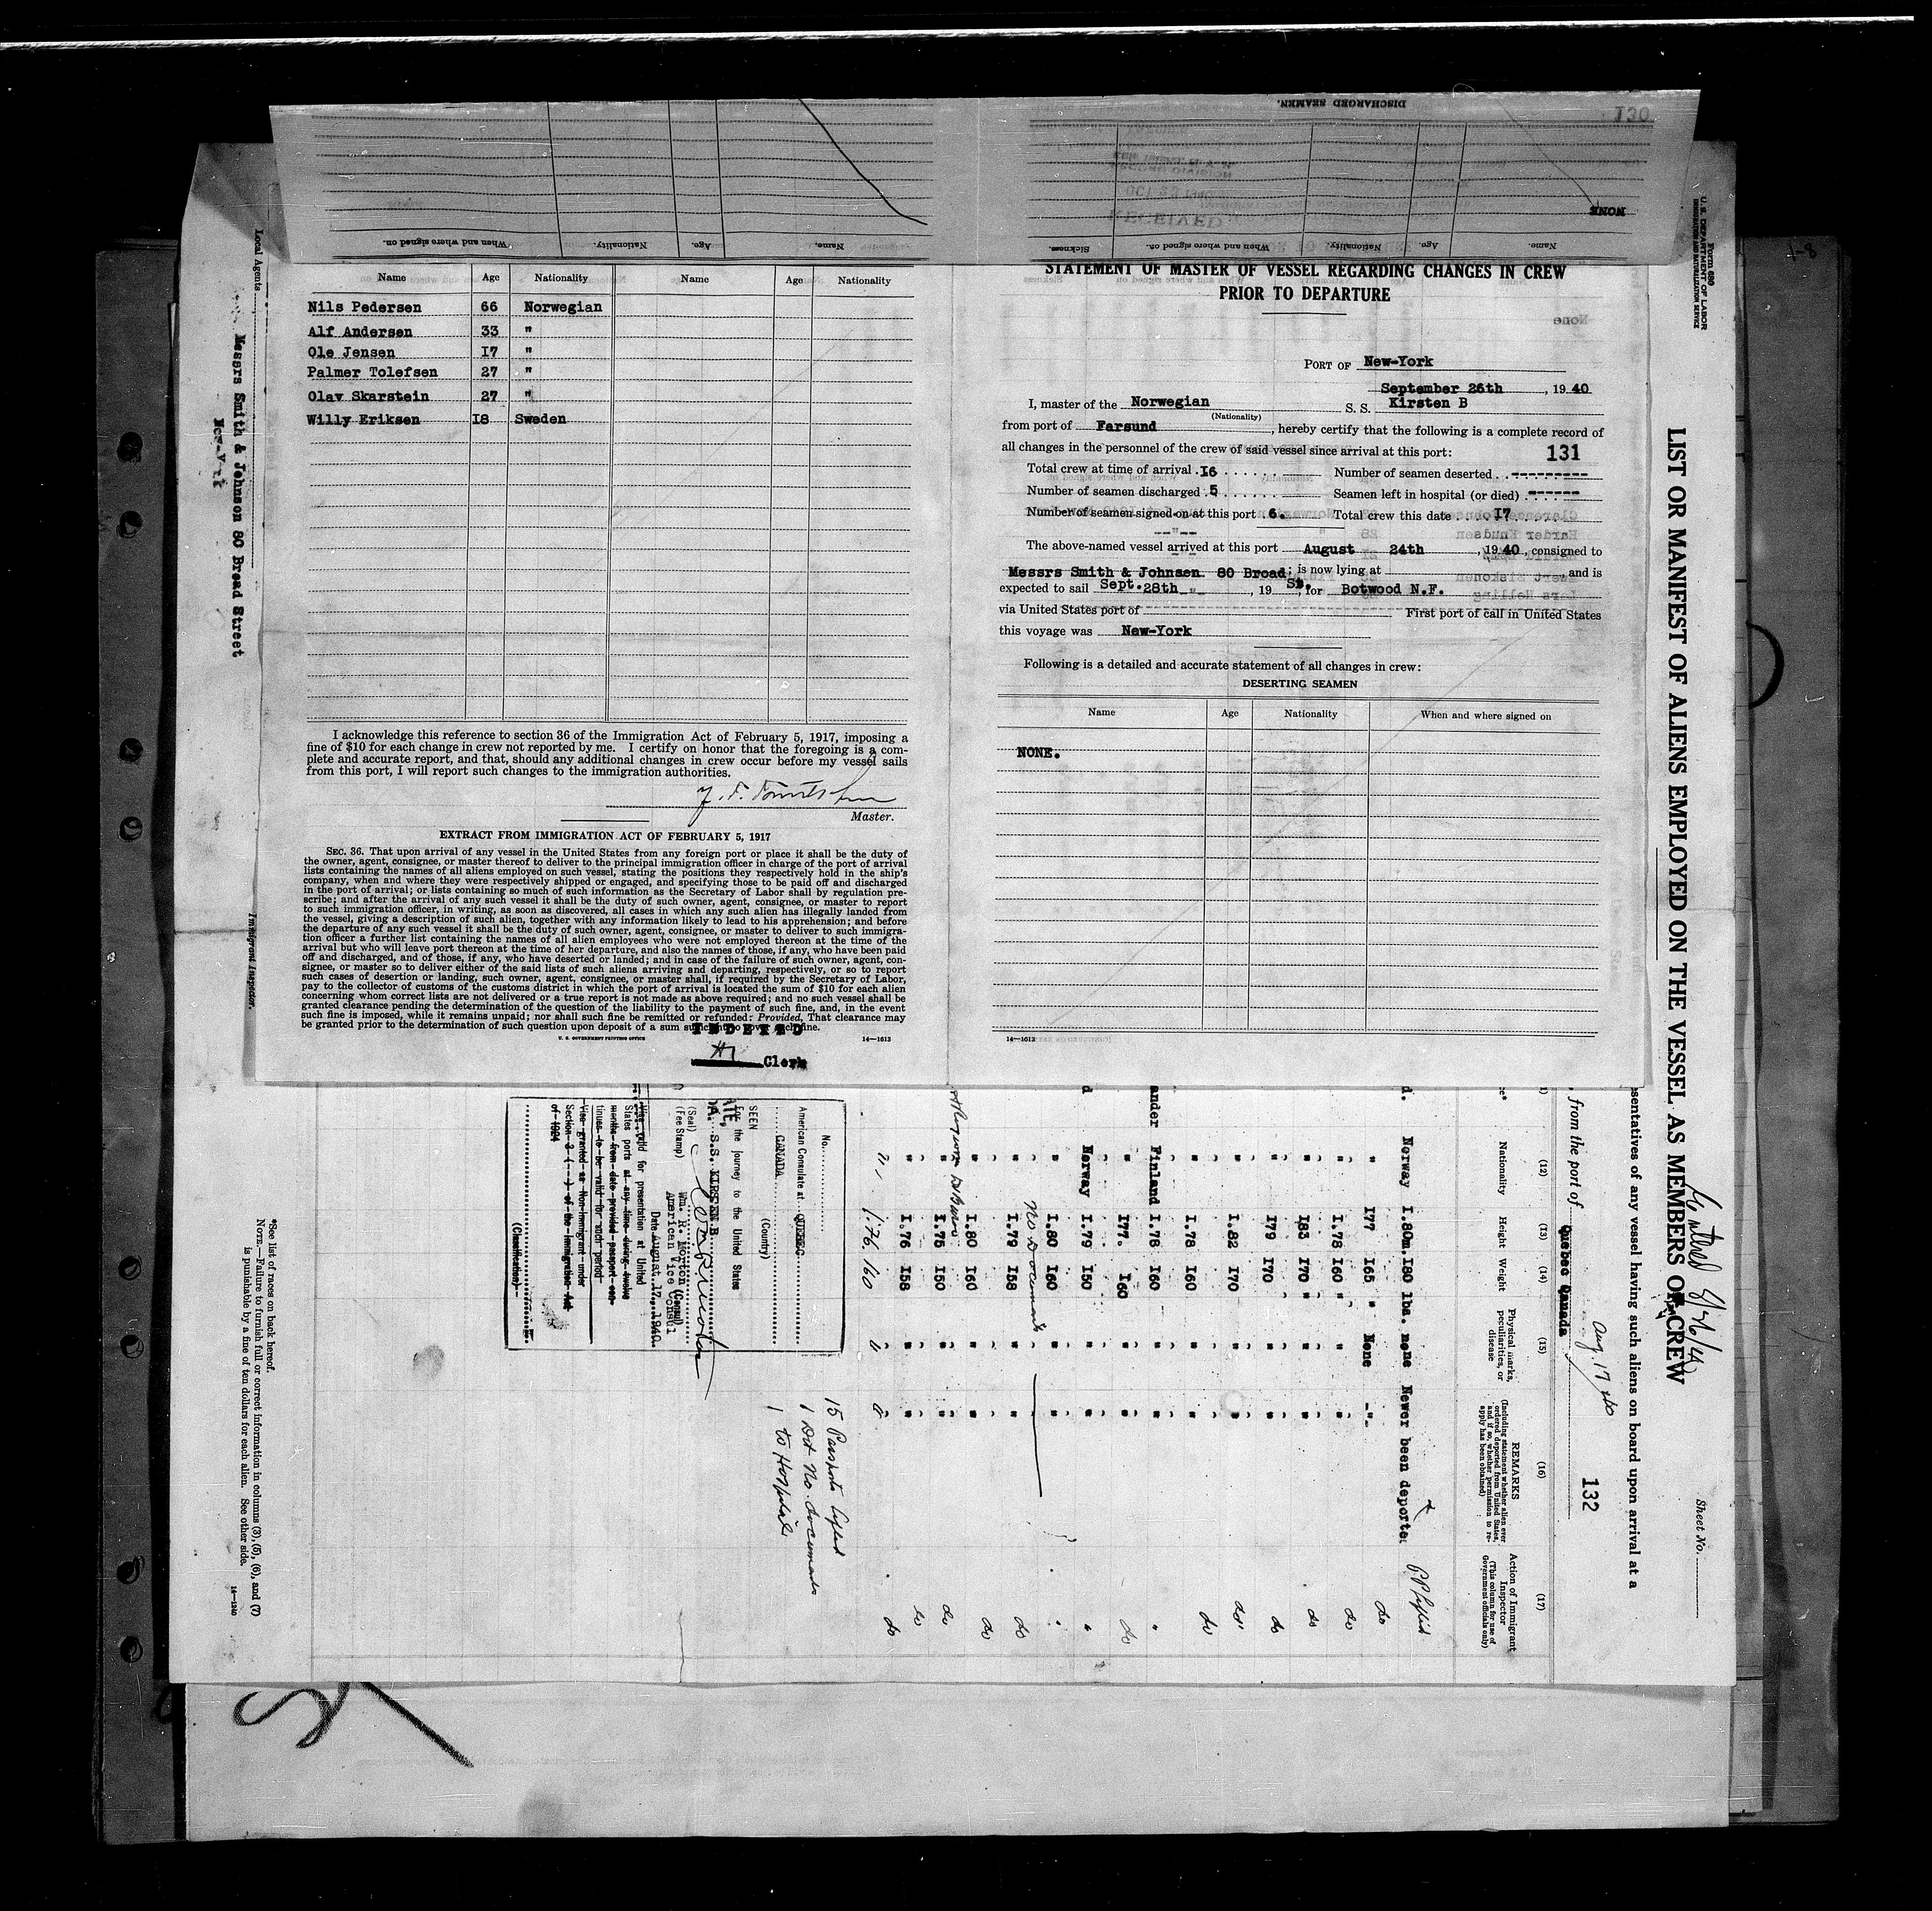 DISCHARGED SEAMEN.
130
NONE
Name.
Age.
Nationality.
When and where signed on.
Sickness.
Name.
Age.
Nationality.
When and where signed on.
RECEIVED
Name Age Nationality Name Age Nationality
Nils Pedersen 66 Norwegian
Alf Andersen 33 "
Ole Jensen I7 "
Palmer Tolefsen 27 "
Olav Skarstein 27 "
Willy Eriksen I8 Sweden
I acknowledge this reference to section 36 of the Immigration Act of February 5, 1917, imposing a
fine of $10 for each change in crew not reported by me. I certify on honor that the foregoing is a com-
plete and accurate report, and that, should any additional changes in crew occur before my vessel sails
from this port, I will report such changes to the immigration authorities.
Master.
EXTRACT FROM IMMIGRATION ACT OF FEBRUARY 5, 1917
SEC. 36. That upon arrival of any vessel in the United States from any foreign port or place it shall be the duty of
the owner, agent, consignee, or master thereof to deliver to the principal immigration officer in charge of the port of arrival
lists containing the names of all aliens employed on such vessel, stating the positions they respectively hold in the ship's
company, when and where they were respectively shipped or engaged, and specifying those to be paid off and discharged
in the port of arrival; or lists containing so much of such information as the Secretary of Labor shall by regulation pre-
scribe; and after the arrival of any such vessel it shall be the duty of such owner, agent, consignee, or master to report
to such immigration officer, in writing, as soon as discovered, all cases in which any such alien has illegally landed from
the vessel, giving a description of such alien, together with any information likely to lead to his apprehension; and before
the departure of any such vessel it shall be the duty of such owner, agent, consignee, or master to deliver to such immigra-
tion officer a further list containing the names of all alien employees who were not employed thereon at the time of the
arrival but who will leave port thereon at the time of her departure, and also the names of those, if any, who have been paid
off and discharged, and of those, if any, who have deserted or landed; and in case of the failure of such owner, agent, con-
signee, or master so to deliver either of the said lists of such aliens arriving and departing, respectively, or so to report
such cases of desertion or landing, such owner, agent, consignee, or master shall, if required by the Secretary of Labor,
pay to the collector of customs of the customs district in which the port of arrival is located the sum of $10 for each alien
concerning whom correct lists are not delivered or a true report is not made as above required; and no such vessel shall be
granted clearance pending the determination of the question of the liability to the payment of such fine, and, in the event
such fine is imposed, while it remains unpaid; nor shall such fine be remitted or refunded: Provided, That clearance may
be granted prior to the determination of such question upon deposit of a sum sufficient to cover such fine.
U. S. GOVERNMENT PRINTING OFFICE 14—1613
INDEXED
Clerk
STATEMENT OF MASTER OF VESSEL REGARDING CHANGES IN CREW
PRIOR TO DEPARTURE
PORT OF New-York
September 26th, 19 40
I, master of the Norwegian S. S. Kirsten B
(Nationality)
from port of Farsund, hereby certify that the following is a complete record of
all changes in the personnel of the crew of said vessel since arrival at this port:
131
Total crew at time of arrival . I6 Number of seamen deserted . . ---------
Number of seamen discharged . 5 Seamen left in hospital (or died) . ------
Number of seamen signed on at this port 6. Total crew this date I7
--"--
The above-named vessel arrived at this port August 24th, 19 40, consigned to
Messrs Smith & Johnsen 80 Broad; is now lying at and is
St.
expected to sail Sept. 28th, 19 , for Botwood N.F.
via United States port of First port of call in United States
this voyage was New-York
Following is a detailed and accurate statement of all changes in crew:
DESERTING SEAMEN
Name Age Nationality When and where signed on
NONE.
14—1613
Form 680
U. S. DEPARTMENT OF LABOR
IMMIGRATION AND NATURALIZATION SERVICE
LIST OR MANIFEST OF ALIENS EMPLOYED ON THE VESSEL AS MEMBERS OF CREW
Sheet No.
sentatives of any vessel having such aliens on board upon arrival at a
132
Aug. 17 40
, from the port of Quebec Canada
(12) (13) (14) (15) (16) (17)
Nationality Height Weight
Physical marks, peculiarities, or disease
REMARKS
(Including statement whether alien ever ordered deported from United States, and if so, whether permission to re-apply has been obtained)
Action of Immigrant Inspector
(This column for use of Government officials only)
Norway I.80m. I80 lbs. none Newer been deported
" I77 I65 " None -"-
" I.78 I60 " " "
" I83 I70 " " "
" I79 I70 " "
" I.82 I70 " "
" I.78 I60 " "
ander Finland I.78 I60 " "
" I77. I60 " "
Norway I.79 I50 " "
" I.80 I60 " "
No Documents
" I.79 I58 " "
" I.80 I60 " "
" I.75 I50 " "
" I.76 I58 " "
1.76. 160
15 Passports lifted
1 Do No. documents
1 to Hospital
No.
American Consulate at QUEBEC
CANADA
(Country)
SEEN
For the journey to the United States
S.S. KIRSTEN B.
(Seal)
(Fee Stamp)
Wm. R. Morton (Consul)
American Vice Consul
Date August. 17., 1940.
Visa valid for presentation at United
States ports at any time during twelve
months from date provided passport con-
tinues to be valid for such period
Visa granted as Non-Immigrant under
Section 3 ( ) of the Immigration Act
of 1924
(Classification)
*See list of races on back hereof.
NOTE.—Failure to furnish full or correct information in columns (3), (5), (6), and (7)
is punishable by a fine of ten dollars for each alien. See other side.
14—1240
Local Agents
Messrs Smith & Johnson 80 Broad Street
New-York
Immigrant Inspector.